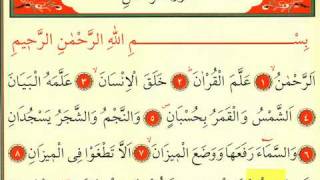 بِسْمِ اللهِ الرَّحْمٰنِ الرَّحِيمِ
اَلرَّحْمٰنُ ﴿١﴾ عَلَّمَ الْقُرْاٰنَ ﴿٢﴾ خَلَقَ الْاِنْسَانَ ﴿٣﴾ عَلَّمَهُ الْبَيَانَ
﴿٤﴾ اَلشَّمْسُ وَالْقَمَرُ بِحُسْبَانٍ ﴿٥﴾ وَالنَّجْمُ وَالشَّجَرُ يَسْجُدَانِ
﴿٦﴾ وَالسَّمَاءَ رَفَعَهَا وَوَضَعَ الْمِيزَانَ ﴿٧﴾ اَلَّا تَطْغَوْا فِي الْمِيزَانِ ﴿٨﴾